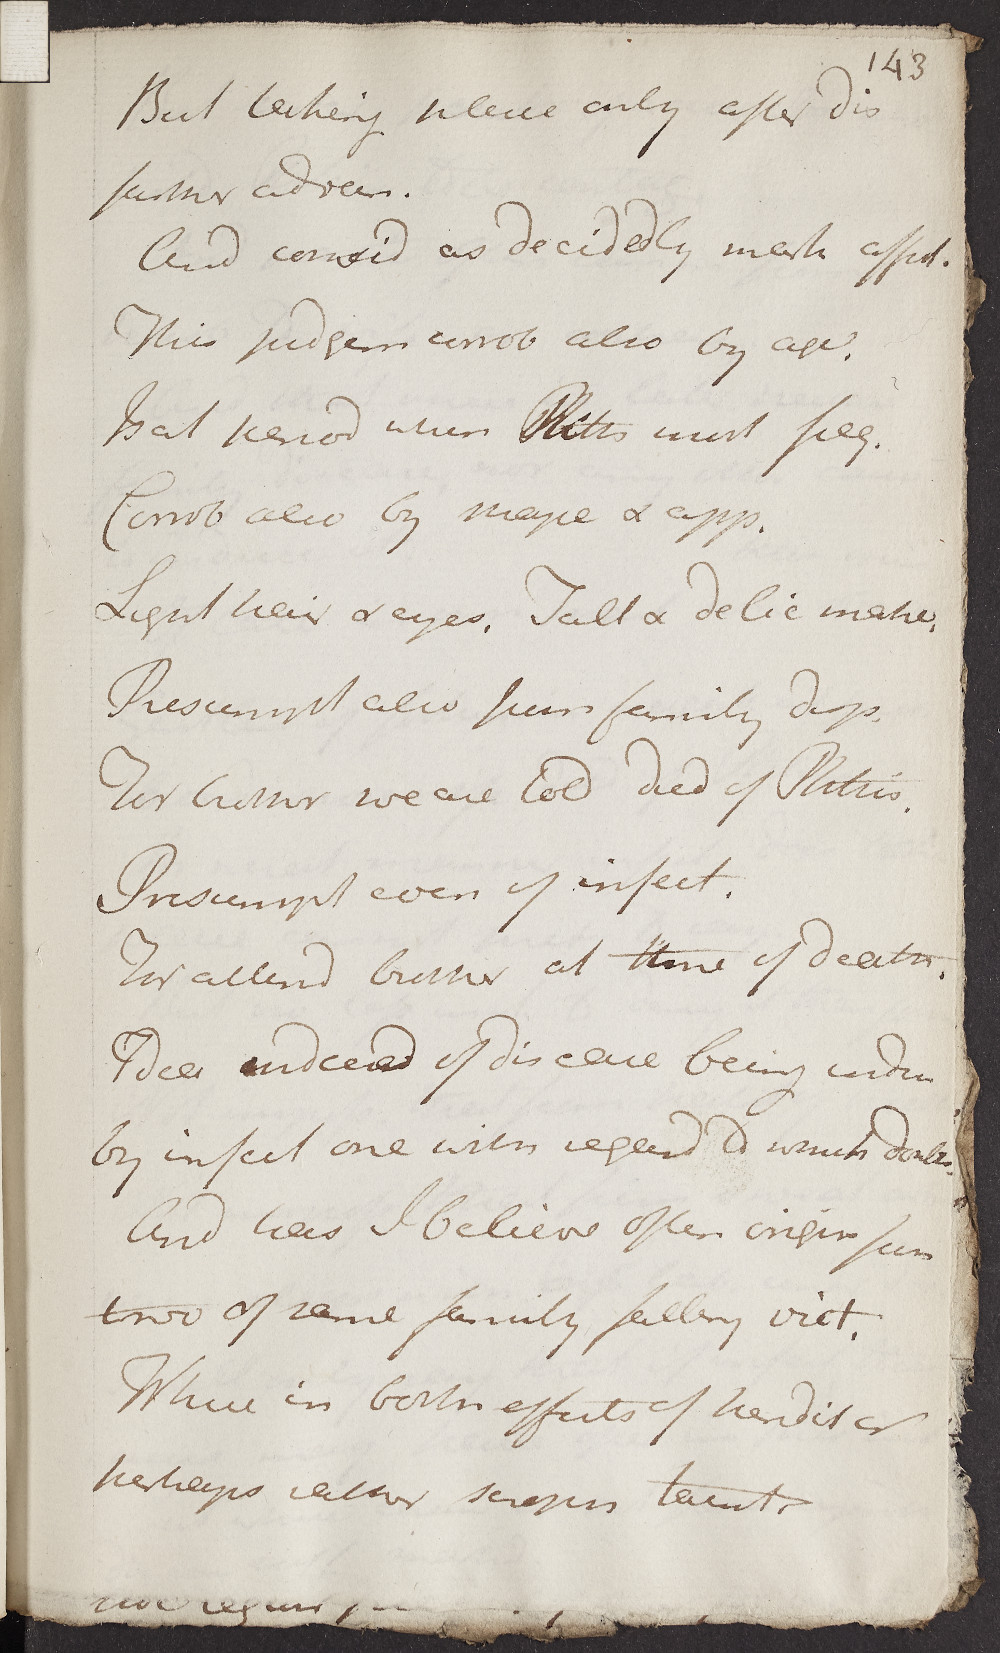 143
But taking place only after dis
further advan.
And consid as decidedly mark affect.
This judgem corrob also by age.
Is at period when Phthis most freq.
Corrob also by shape & app.
Light hair & eyes. Tall & delic make.
Presumpt also from family disp.
For brother we are told died of Phthis.
Presumpt even of infect.
For attend brother at time of death.
Idea indeed of disease being indu
by infect one with regard to which doubts.
And has I believe often origin from
two of same family falling vict.
Where in both effects of heredit or
perhaps rather taint